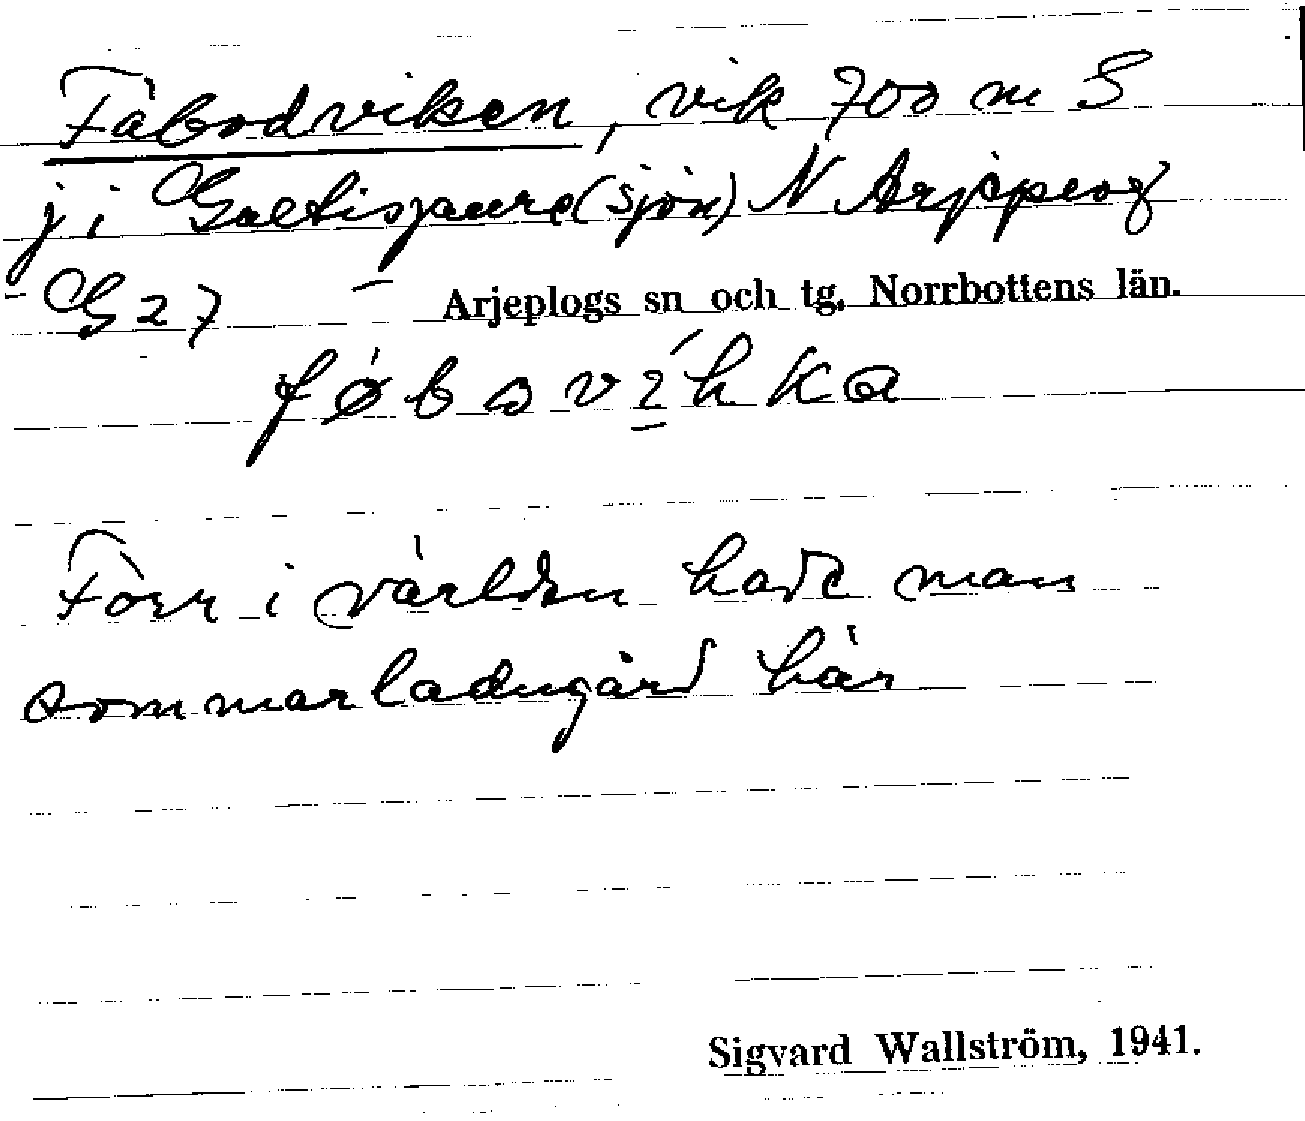 Fäbodviken, vik 700 m S
j i Galtisjaure (sjön) N Arjeplog
G 27 Arjeplogs sn och tg, Norrbottens län.
Förr i världen hade man
sommarladugård här
Sigvard Wallström, 1941.